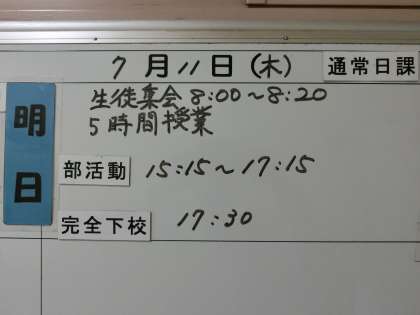 7月11日(木) 通常日課
明日
生徒集会 8:00～8:20
5時間授業
部活動 15:15～17:15
完全下校 17:30